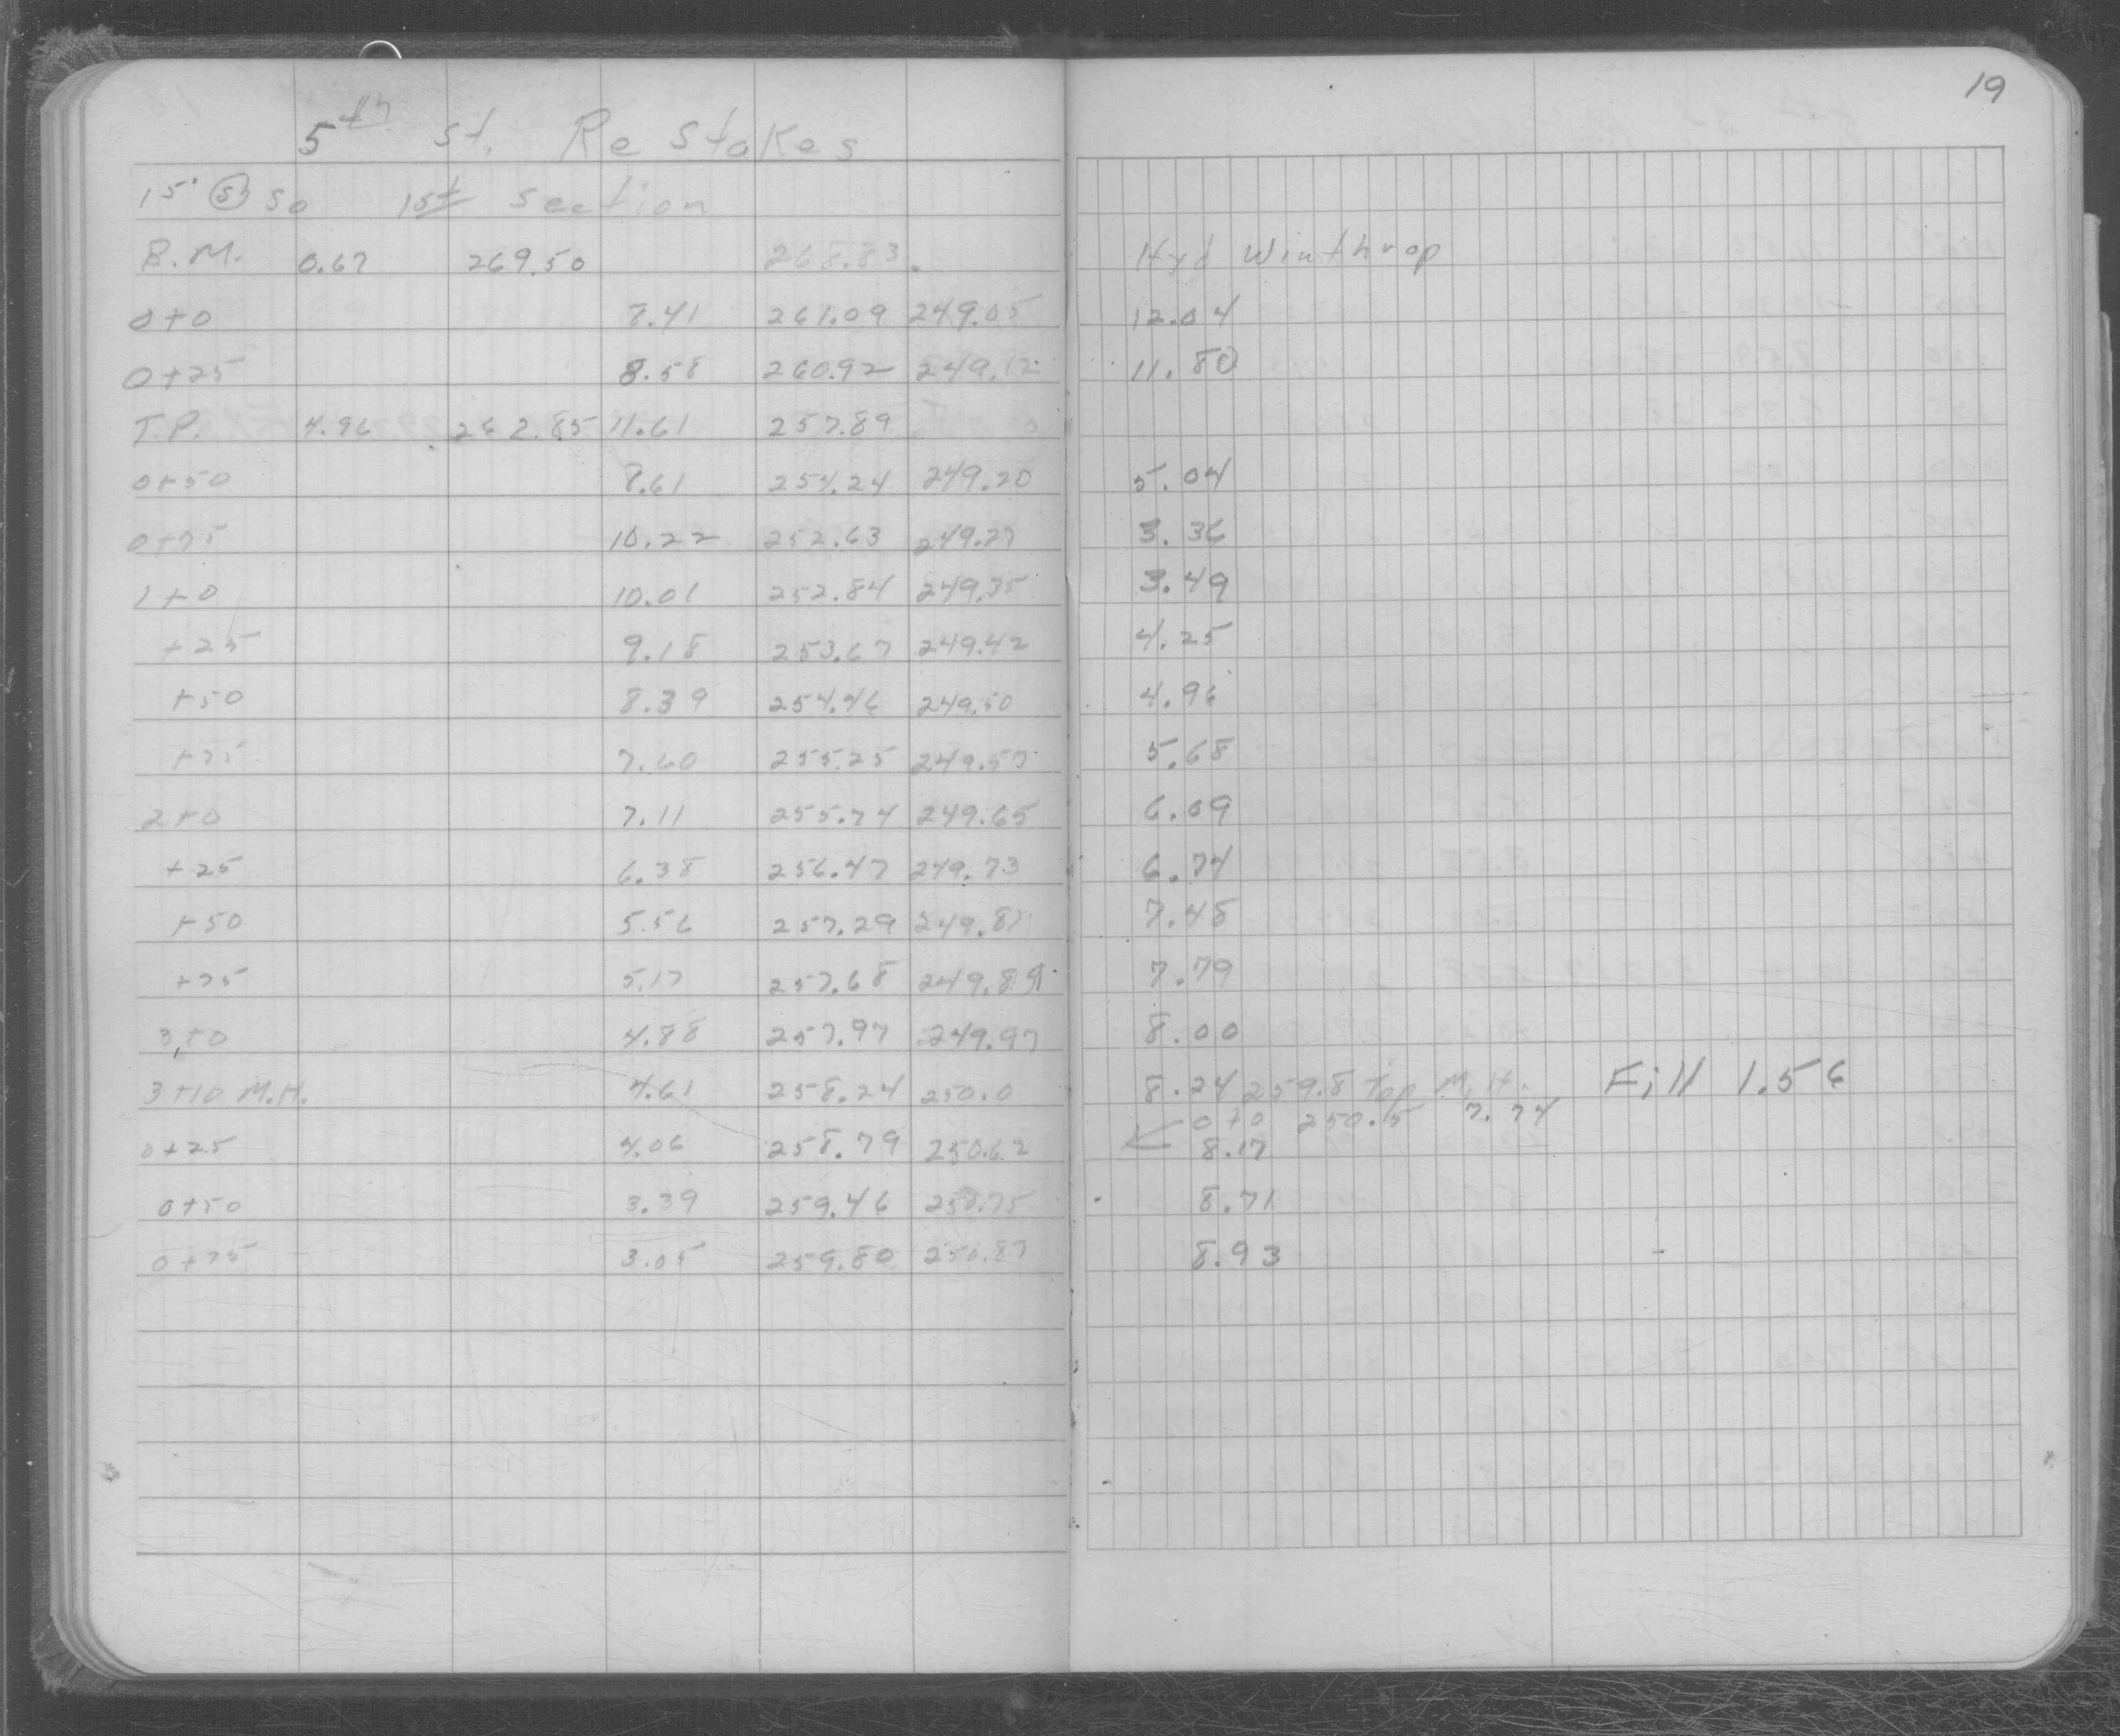 19
5th St. Re Stakes
15' (S) So 1st section
B.M. 0.67 269.50 268.83 Hyd Winthrop
0+0 8.41 261.09 249.05 12.04
0+25 8.58 260.92 249.12 11.80
T.P. 4.96 262.85 11.61 257.89
0+50 8.61 254.24 249.20 5.04
0+75 10.22 252.63 249.27 3.36
1+0 10.01 252.84 249.35 3.49
+25 9.18 253.67 249.42 4.25
+50 8.39 254.46 249.50 4.96
+75 7.60 255.25 249.57 5.68
2+0 7.11 255.74 249.65 6.09
+25 6.38 256.47 249.73 6.74
+50 5.56 257.29 249.81 7.48
+75 5.17 257.68 249.89 7.79
3+0 4.88 257.97 249.97 8.00
3+10 M.H. 4.61 258.24 250.0 8.24 259.8 Top M.H. Fill 1.56
0+0 250.5 7.74
0+25 4.06 258.79 250.62 8.17
0+50 3.39 259.46 250.75 8.71
0+75 3.05 259.80 250.87 8.93